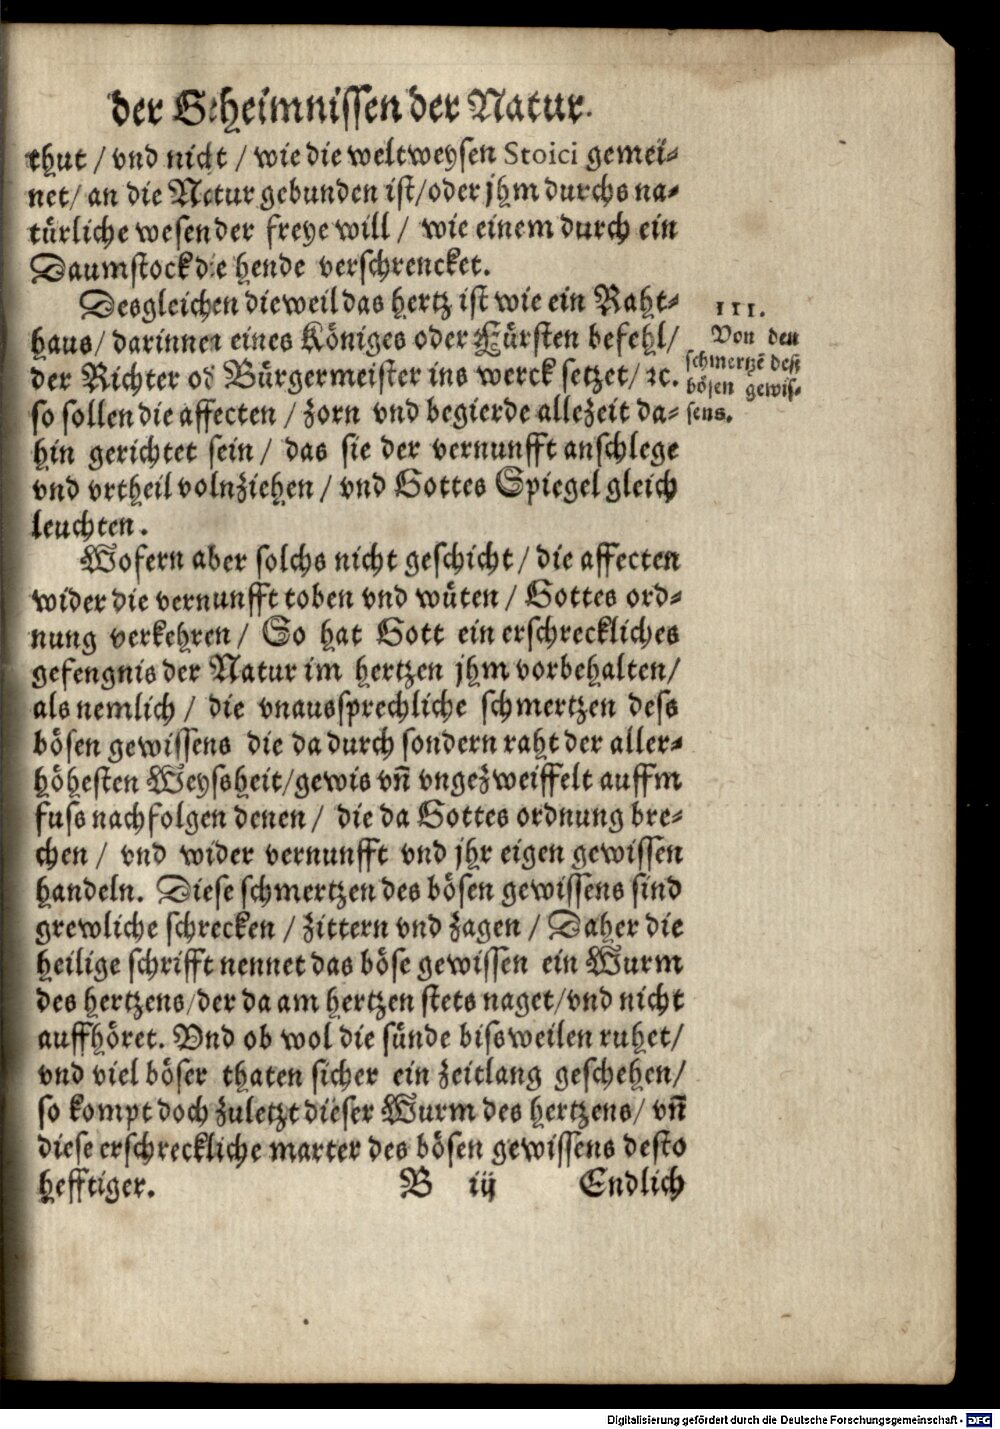 der Geheimnissen der Natur.
thut / vnd nicht / wie die weltweysen Stoici gemei⸗
net / an die Natur gebunden ist / oder jhm durchs na⸗
türliche wesen der freye will / wie einem durch ein
Daumstock die hende verschrencket.
Desgleichen dieweil das hertz ist wie ein Raht⸗
haus / darinnen eines Königes oder Fürsten befehl /
der Richter od Bürgermeister ins werck setzet / ꝛc.
so sollen die affecten / zorn vnd begierde allezeit da⸗
hin gerichtet sein / das sie der vernunfft anschlege
vnd vrtheil volnziehen / vnd Gottes Spiegel gleich
leuchten.
III.
Von den
schmertzē deß
bösen gewis⸗
sens.
Wofern aber solchs nicht geschicht / die affecten
wider die vernunfft toben vnd wüten / Gottes ord⸗
nung verkehren / So hat Gott ein erschreckliches
gefengnis der Natur im hertzen jhm vorbehalten /
als nemlich / die vnaussprechliche schmertzen dess
bösen gewissens die da durch sondern raht der aller⸗
höhesten Weyssheit / gewis vn̄ vngezweiffelt auffm
fuss nachfolgen denen / die da Gottes ordnung bre⸗
chen / vnd wider vernunfft vnd jhr eigen gewissen
handeln. Diese schmertzen des bösen gewissens sind
grewliche schrecken / zittern vnd zagen / Daher die
heilige schrifft nennet das böse gewissen ein Wurm
des hertzens / der da am hertzen stets naget / vnd nicht
auffhöret. Vnd ob wol die sünde bissweilen ruhet /
vnd viel böser thaten sicher ein zeitlang geschehen /
so kompt doch zuletzt dieser Wurm des hertzens / vn̄
diese erschreckliche marter des bösen gewissens desto
hefftiger. B iij Endlich
Digitalisierung gefördert durch die Deutsche Forschungsgemeinschaft - DFG